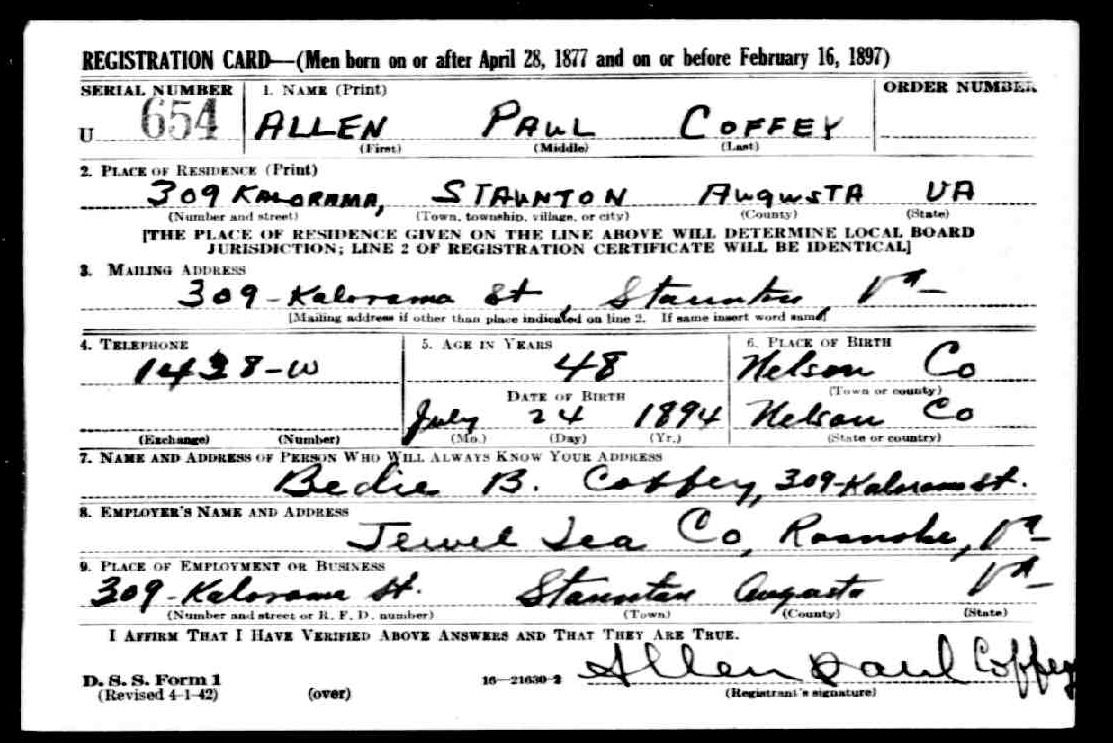 REGISTRATION CARD—(Men born on or after April 28, 1877 and on or before February 16, 1897)
SERIAL NUMBER 1. NAME (Print) ORDER NUMBER
U 654 ALLEN PAUL COFFEY
(First) (Middle) (Last)
2. PLACE OF RESIDENCE (Print)
309 KALORAMA, STAUNTON AUGUSTA VA
(Number and street) (Town, township, village, or city) (County) (State)
[THE PLACE OF RESIDENCE GIVEN ON THE LINE ABOVE WILL DETERMINE LOCAL BOARD
JURISDICTION; LINE 2 OF REGISTRATION CERTIFICATE WILL BE IDENTICAL]
3. MAILING ADDRESS
309-Kalorama St, Staunton, Va-
[Mailing address if other than place indicated on line 2. If same insert word same]
4. TELEPHONE 5. AGE IN YEARS 6. PLACE OF BIRTH
1428-W 48 Nelson Co
DATE OF BIRTH (Town or county)
July 24 1894 Nelson Co
(Exchange) (Number) (Mo.) (Day) (Yr.) (State or country)
7. NAME AND ADDRESS OF PERSON WHO WILL ALWAYS KNOW YOUR ADDRESS
Bedie B. Coffey, 309-Kalorama St.
8. EMPLOYER'S NAME AND ADDRESS
Jewel Tea Co, Roanoke, Va-
9. PLACE OF EMPLOYMENT OR BUSINESS
309-Kalorama St. Staunton Augusta Va-
(Number and street or R. F. D. number) (Town) (County) (State)
I AFFIRM THAT I HAVE VERIFIED ABOVE ANSWERS AND THAT THEY ARE TRUE.
Allen Paul Coffey
D. S. S. Form 1
(Revised 4-1-42) (over) 16—21630-2 (Registrant's signature)